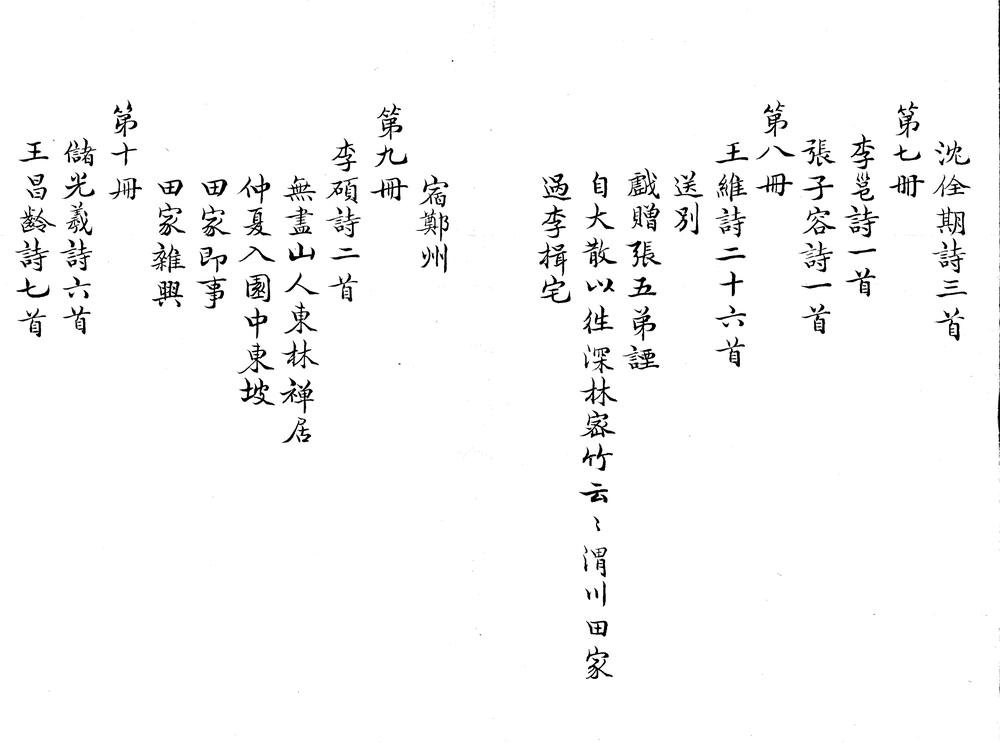 沈佺期詩三首
第七冊
李邕詩一首
張子容詩一首
第八冊
王維詩二十六首
送別
戲贈張五弟諲
自大散以徃深林密竹云〻渭川田家
過李揖宅
宿鄭州
第九冊
李碩詩二首
無盡山人東林禅居
仲夏入園中東坡
田家即事
田家雜興
第十冊
儲光羲詩六首
王昌齡詩七首